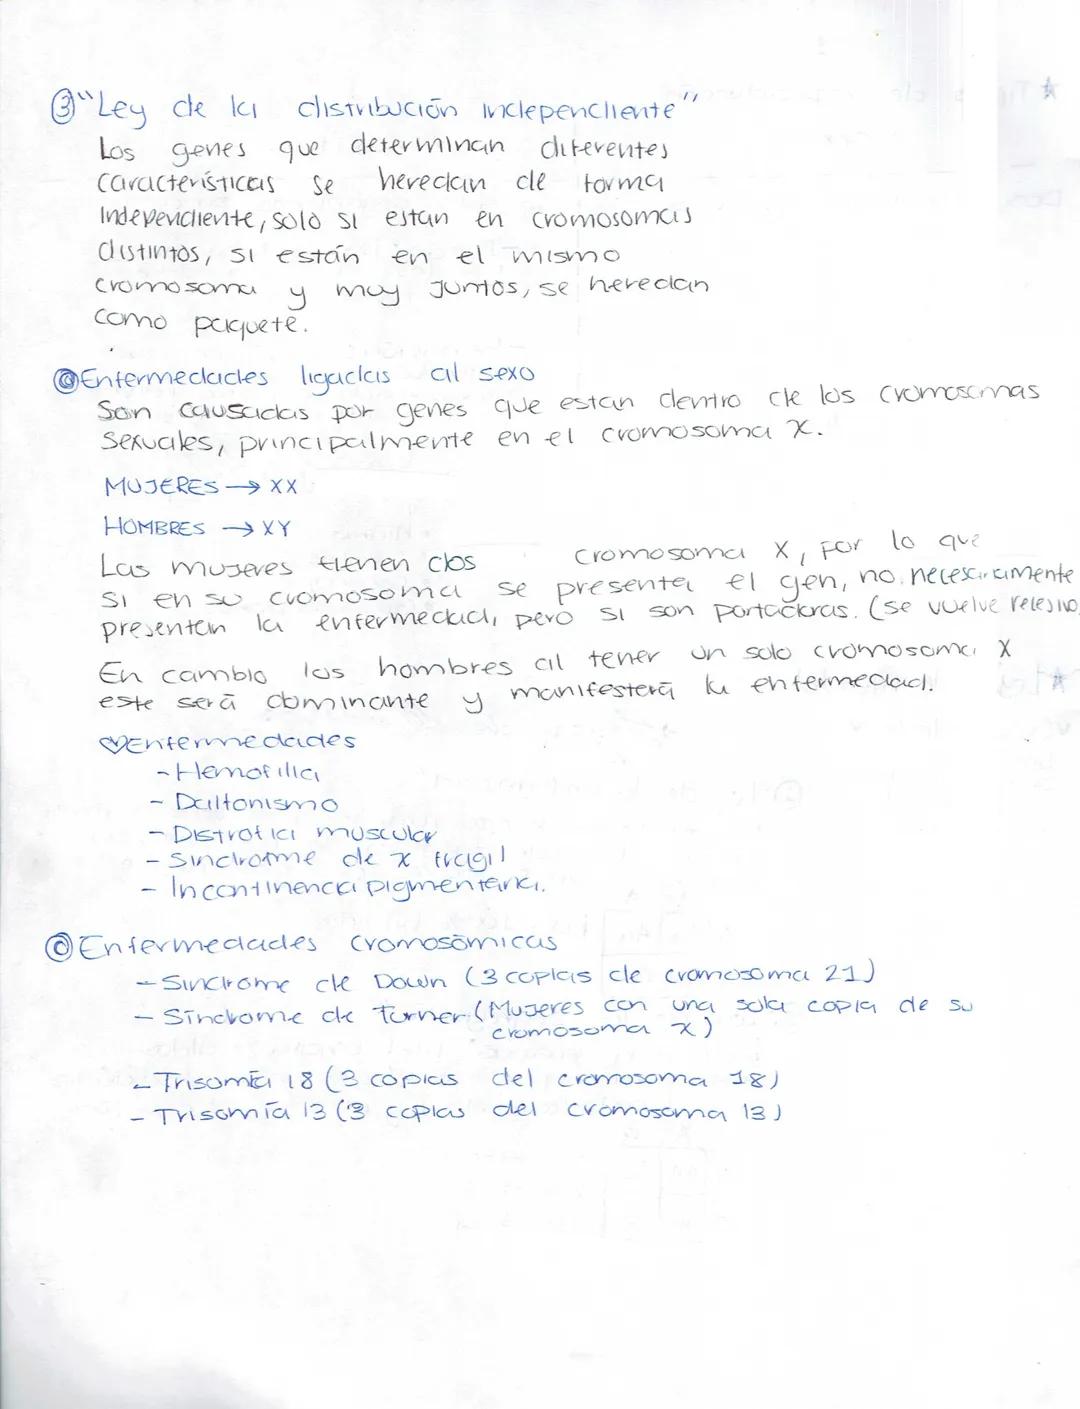 ③ "Ley de la distribución independiente"
Los genes que determinan diferentes
características se heredan de forma
Independiente, solo si estan en cromosomas
distintos, si están en el mismo
cromosoma y muy juntos, se heredan
como paquete.
Enfermedades ligadas al sexo
Son causadas por genes que estan dentro de los cromosomas
sexuales, principalmente en el cromosoma X.
MUJERES → XX
HOMBRES → XY
Las mujeres tienen dos cromosoma X, por lo que
si en su cromosoma se presenta el gen, no necesariamente
presentan la enfermedad, pero si son portadoras. (se vuelve recesivo
En cambio los hombres al tener un solo cromosoma X
este será dominante y manifesterá la enfermedad.
♡Enfermedades
- Hemofilia
- Daltonismo
- Distrofia muscular
- Sindrome de x fragil
- Incontinencia pigmentaria.
Enfermedades cromosómicas
- Sindrome de Down (3 copias de cromosoma 21)
- Síndrome de Turner (Mujeres con una sola copia de su
cromosoma x)
- Trisomía 18 (3 copias del cromosoma 18)
- Trisomía 13 (3 copias del cromosoma 13)